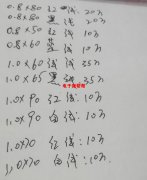 0.8×80 红线:20万
0.8×80 黑线:20万
0.8×50 红线:10万
0.8×60 蓝线:10万
1.0×60 线:35万
1.0×65 黑线:35万
1.0×90 红线:10万
1.0×90 白线:10万
1.0×70 红线:10万
1.0×70 白线:10万